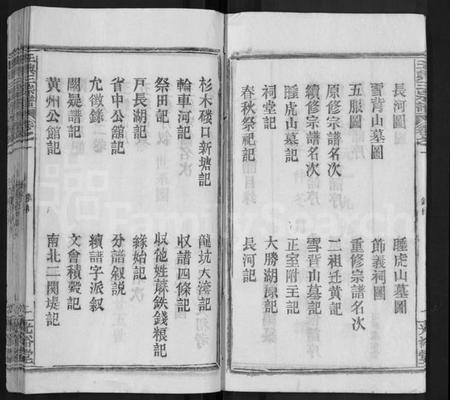 長河圖　睡虎山墓圖
雪背山墓圖　節義祠圖
五服圖　重修宗譜名次
原修宗譜名次　二祖迁黄記
續修宗譜名次　雪背山墓記
睡虎山墓記　正室附主記
祠堂記　大勝湖原記
春秋祭祀記　長河記
杉木磯口新塘記　龍坑大塆記
輪車河記　收譜四條記
祭田記　收他姓蔴鉄錢粮記
戸長湖記　緣始記
省中公館記　分譜叙説
允徴錄　續譜字派叙
闕疑譜記　文會積穀記
黄州公館記　南北二関堤記
光裕堂